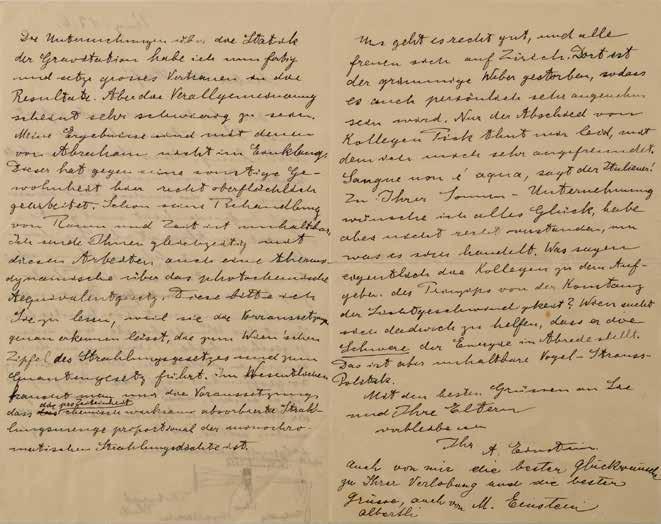 Die Untersuchungen über die Statik
der Gravitation habe ich nun fertig
und setze grosses Vertrauen in die
Resultate. Aber das Verallgemeinerung
scheint sehr schwierig zu sein.
Meine Ergebnisse sind mit denen
von Abraham nicht im Einklang.
Dieser hat gegen seine sonstige Ge-
wohnheit hier recht oberflächlich
gearbeitet. Schon seine Behandlung
von Raum und Zeit ist unhaltbar.
Ich sende Ihnen gleichzeitig mit
diesen Arbeiten auch eine thermo-
dynamische über das photochemische
Aequivalentgesetz. Diese bitte ich
Sie zu lesen, weil sie die Voraussetzung
genau erkennen lässt, die zum Wien'schen
Zipfel des Strahlungsgesetzes und zum
Quantengesetz führt. Im Wesentlichen
nur die Voraussetzung,
dass die pro Zeiteinheit
chemisch wirksam absorbierte Strah-
lungsmenge proportional der monochro-
matischen Strahlungsdichte ist.
Uns geht es recht gut, und alle
freuen sich auf Zürich. Dort ist
der grimmige Weber gestorben, sodass
es auch persönlich sehr angenehm
sein wird. Nur der Abschied von
Kollegen Pick thut mir leid, mit
dem ich mich sehr angefreundet.
Sangue non è aqua, sagt der Italiener!
Zu Ihrer Unternehmung
wünsche ich alles Glück, habe
aber nicht recht verstanden, um
was es sich handelt. Was sagen
eigentlich die Kollegen zu dem Auf-
geben des Prinzips von der Konstanz
der Lichtgeschwindigkeit? Wien sucht
sich dadurch zu helfen, dass er die
Schwere der Energie in Abrede stellt.
Das ist aber unhaltbare Vogel-Strauss-
Politik.
Mit den besten Grüssen an Sie
und Ihre Eltern
verbleibe ich
Ihr A. Einstein
auch von mir die besten Glückwünsche
zu Ihrer Verlobung und die besten
Grüsse, auch von M. Einstein
Albertli